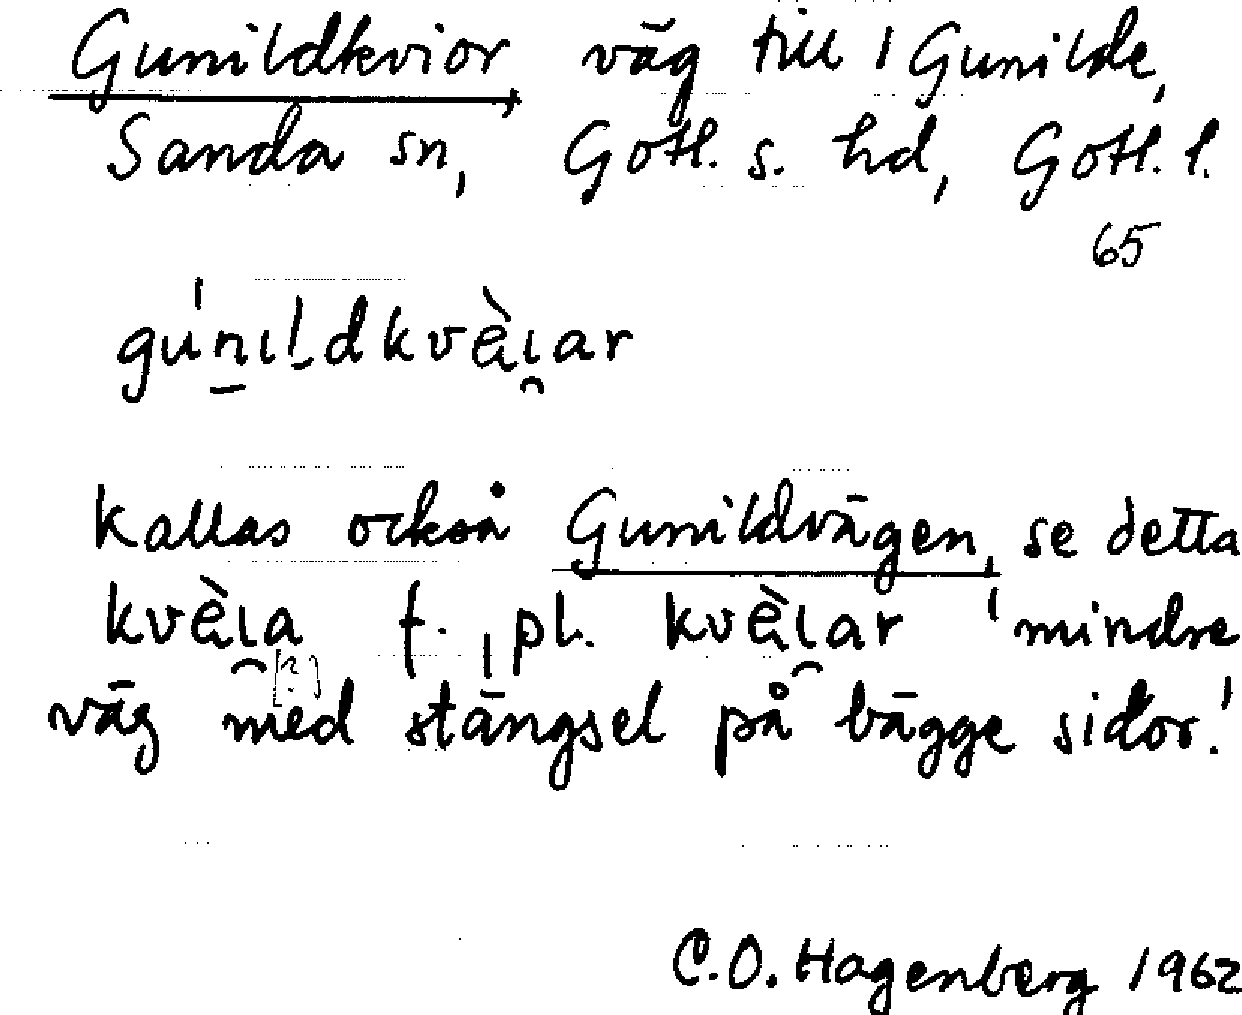 Gunildkvior, väg till 1 Gunilde,
Sanda sn, Gotl. s. hd, Gotl. l.
65
gu̍n̲ıl̠dkvèı̯ar
Kallas också Gunildvägen, se detta
kvèı̯a f., pl. kvèı̯ar 'mindre
[?]
väg med stängsel på bägge sidor.'
C.O. Hagenberg 1962